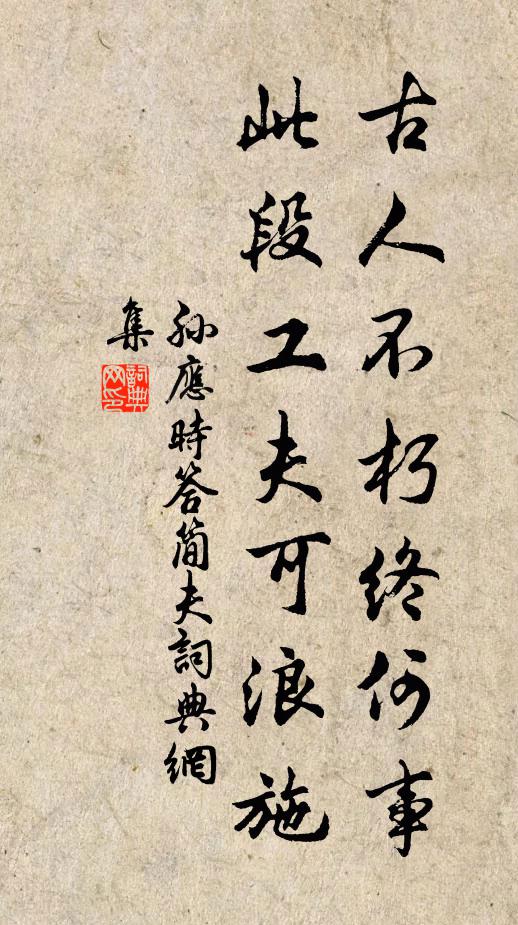 古人不朽終何事
此段工夫可浪施
孫應時答簡夫詞典網
集
詞典
网印